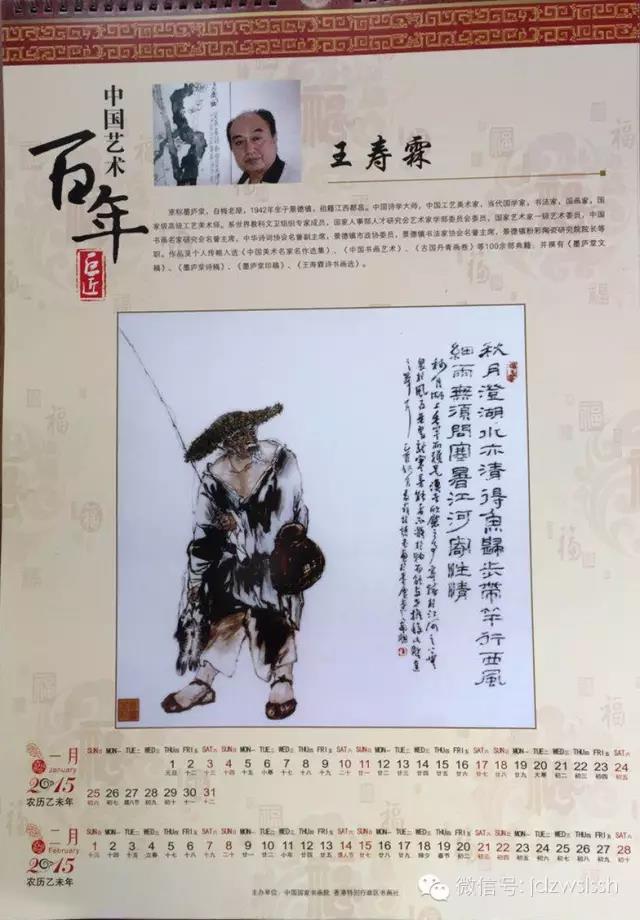 中国艺术
百年
巨匠
王寿霖
室称墨庐堂,白梅老屋,1942年生于景德镇,祖籍江西都昌。中国诗学大师,中国工艺美术家,当代国学家,书法家,国画家,国
家级高级工艺美术师。系世界教科文卫组织专家成员,国家人事部人才研究会艺术家学部委员会委员,国家艺术家一级艺术委员,中国
书画名家研究会名誉主席,中华诗词协会名誉副主席,景德镇市政协委员,景德镇书法家协会名誉主席,景德镇粉彩陶瓷研究院院长等
职。作品及个人传略入选《中国美术名家名作选集》、《中国书画艺术》、《古国丹青画卷》等100余部典籍,并撰有《墨庐堂文
稿》、《墨庐堂诗稿》、《墨庐堂印稿》、《王寿霖诗书画选》。
秋月澄湖水亦清得鱼归步带竿行西风
细雨无须问寒暑江河寄性情
一月
January
2015
农历乙未年
SUN日 MON一 TUE二 WED三 THU四 FRI五 SAT六 SUN日 MON一 TUE二 WED三 THU四 FRI五 SAT六 SUN日 MON一 TUE二 WED三 THU四 FRI五 SAT六 SUN日 MON一 TUE二 WED三 THU四 FRI五 SAT六
1 2 3 4 5 6 7 8 9 10 11 12 13 14 15 16 17 18 19 20 21 22 23 24
元旦 十二 十三 十四 十五 小寒 十七 十八 十九 二十 廿一 廿二 廿三 廿四 廿五 廿六 廿七 廿八 廿九 大寒 初二 初三 初四 初五
25 26 27 28 29 30 31
初六 初七 腊八节 初九 初十 十一 十二
二月
February
2015
农历乙未年
SUN日 MON一 TUE二 WED三 THU四 FRI五 SAT六 SUN日 MON一 TUE二 WED三 THU四 FRI五 SAT六 SUN日 MON一 TUE二 WED三 THU四 FRI五 SAT六 SUN日 MON一 TUE二 WED三 THU四 FRI五 SAT六
1 2 3 4 5 6 7 8 9 10 11 12 13 14 15 16 17 18 19 20 21 22 23 24 25 26 27 28
十三 十四 十五 立春 十七 十八 十九 二十 廿一 廿二 小年 廿四 廿五 情人节 廿七 廿八 廿九 除夕 春节 初二 初三 初四 初五 初六 初七 初八 初九 初十
主办单位:中国国家书画院 香港特别行政区书画社
微信号: jdzwslsh